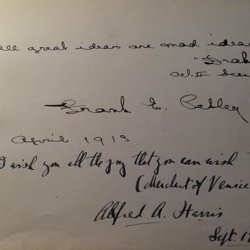 all great ideas are mad ideas
Act II
Frank E.
April 1913
I wish you all the joy that you can wish"
(Merchant of Venice
Alfred A. Harris
Sept. 1